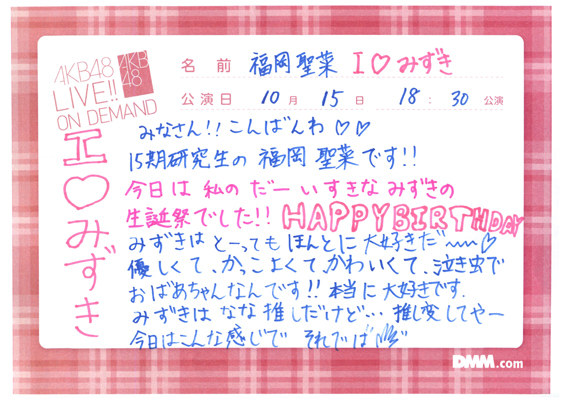 AKB48
LIVE!!
ON DEMAND
AKB
48
名前 福岡聖菜 I♡みずき
公演日 10月 15日 18:30公演
I♡みずき
みなさん!!こんばんわ♡♡
15期研究生の福岡聖菜です!!
今日は私のだーいすきなみずきの
生誕祭でした!! HAPPYBIRTHDAY
みずきはとーってもほんとに大好きだ〜〜♡
優しくて、かっこよくて、かわいくて、泣き虫で
おばあちゃんなんです!!本当に大好きです.
みずきはなな推しだけど…推し変してやー
今日はこんな感じで それでば
DMM.com